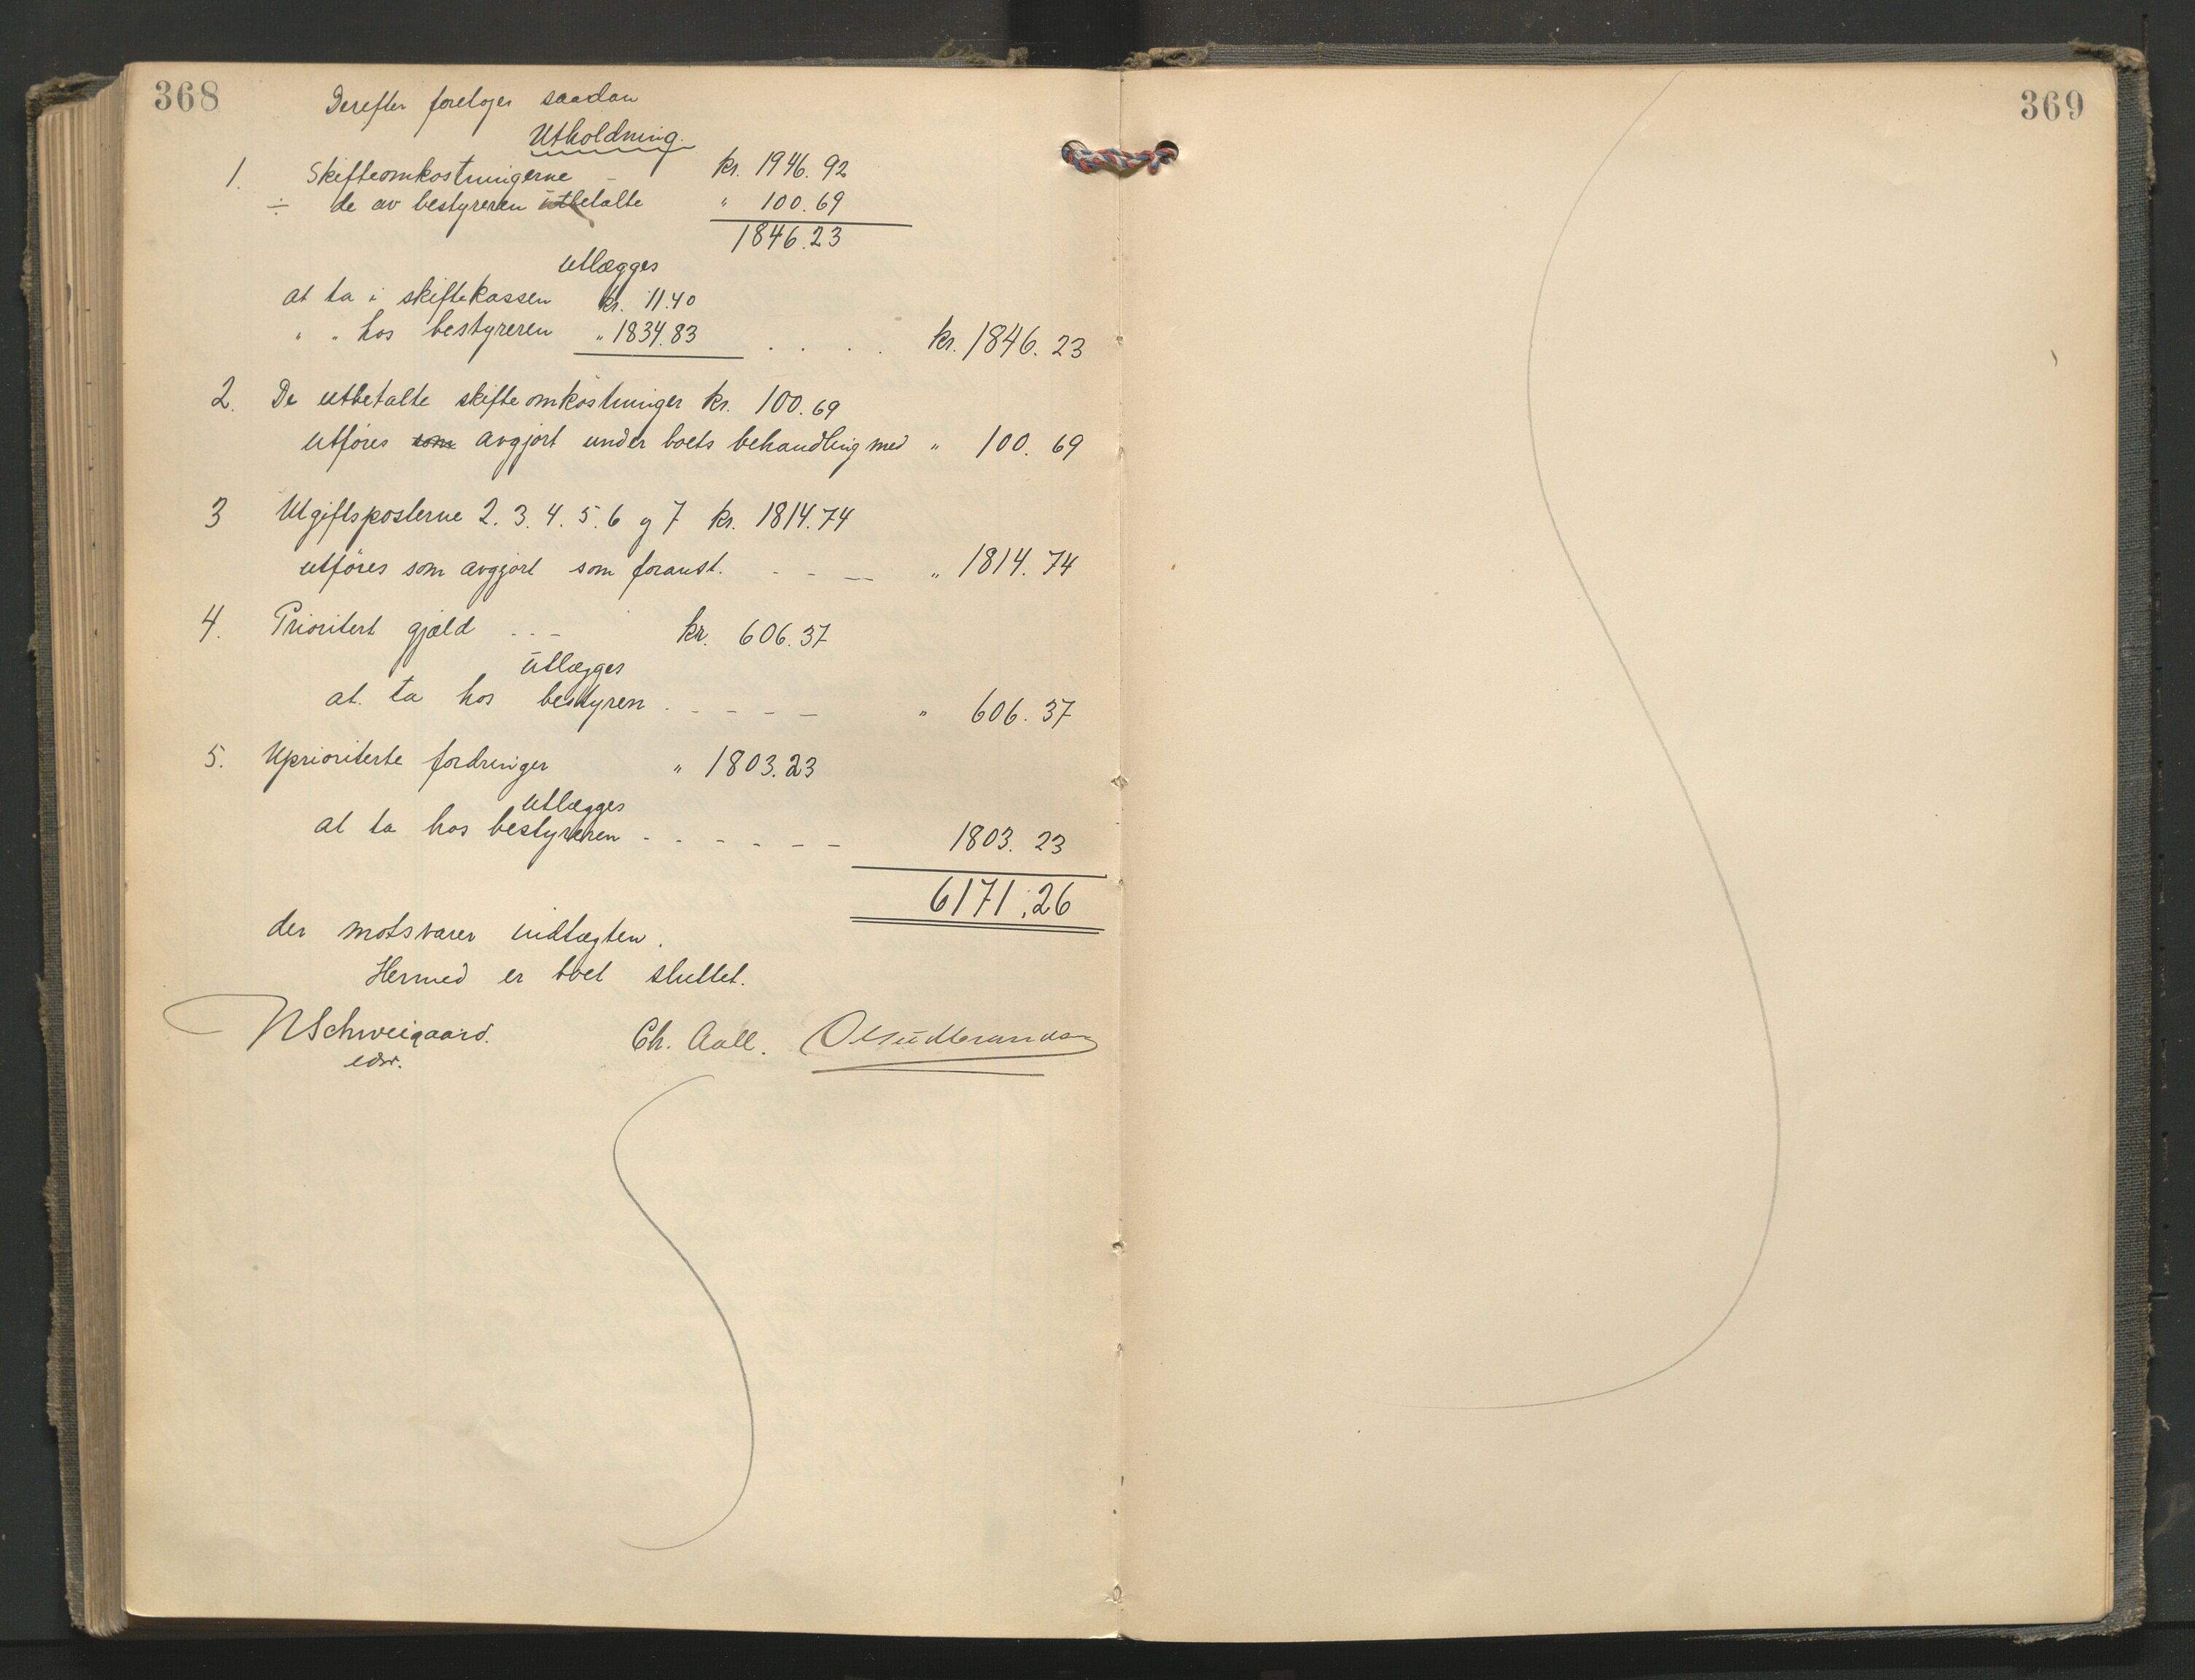 368
Derefter foretoges saadan
Utholdning.
1. Skifteomkostningerne - kr. 1946.92
÷ de av bestyreren utbetalte " 100.69
1846.23
utlægges
at ta i skiftekassen kr. 11.40
" " hos bestyreren " 1834.83 . . . . kr. 1846.23
2. De utbetalte skifteomkostninger kr. 100.69
utføres som avgjort under boets behandling med " 100.69
3 Utgiftsposterne 2. 3. 4. 5. 6 og 7 kr. 1814.74
utføres som avgjort som foranst. - - - " 1814.74
4. Prioritert gjæld - - - kr. 606.37
utlægges
at ta hos bestyren . - - - - " 606.37
5. Uprioriterte fordringer " 1803.23
utlægges
at ta hos bestyreren - - - - - - 1803.23
6171.26
der motsvarer indtægten.
Hermed er boet sluttet.
N Schweigaard. Ch. Aall.
edsv.
369